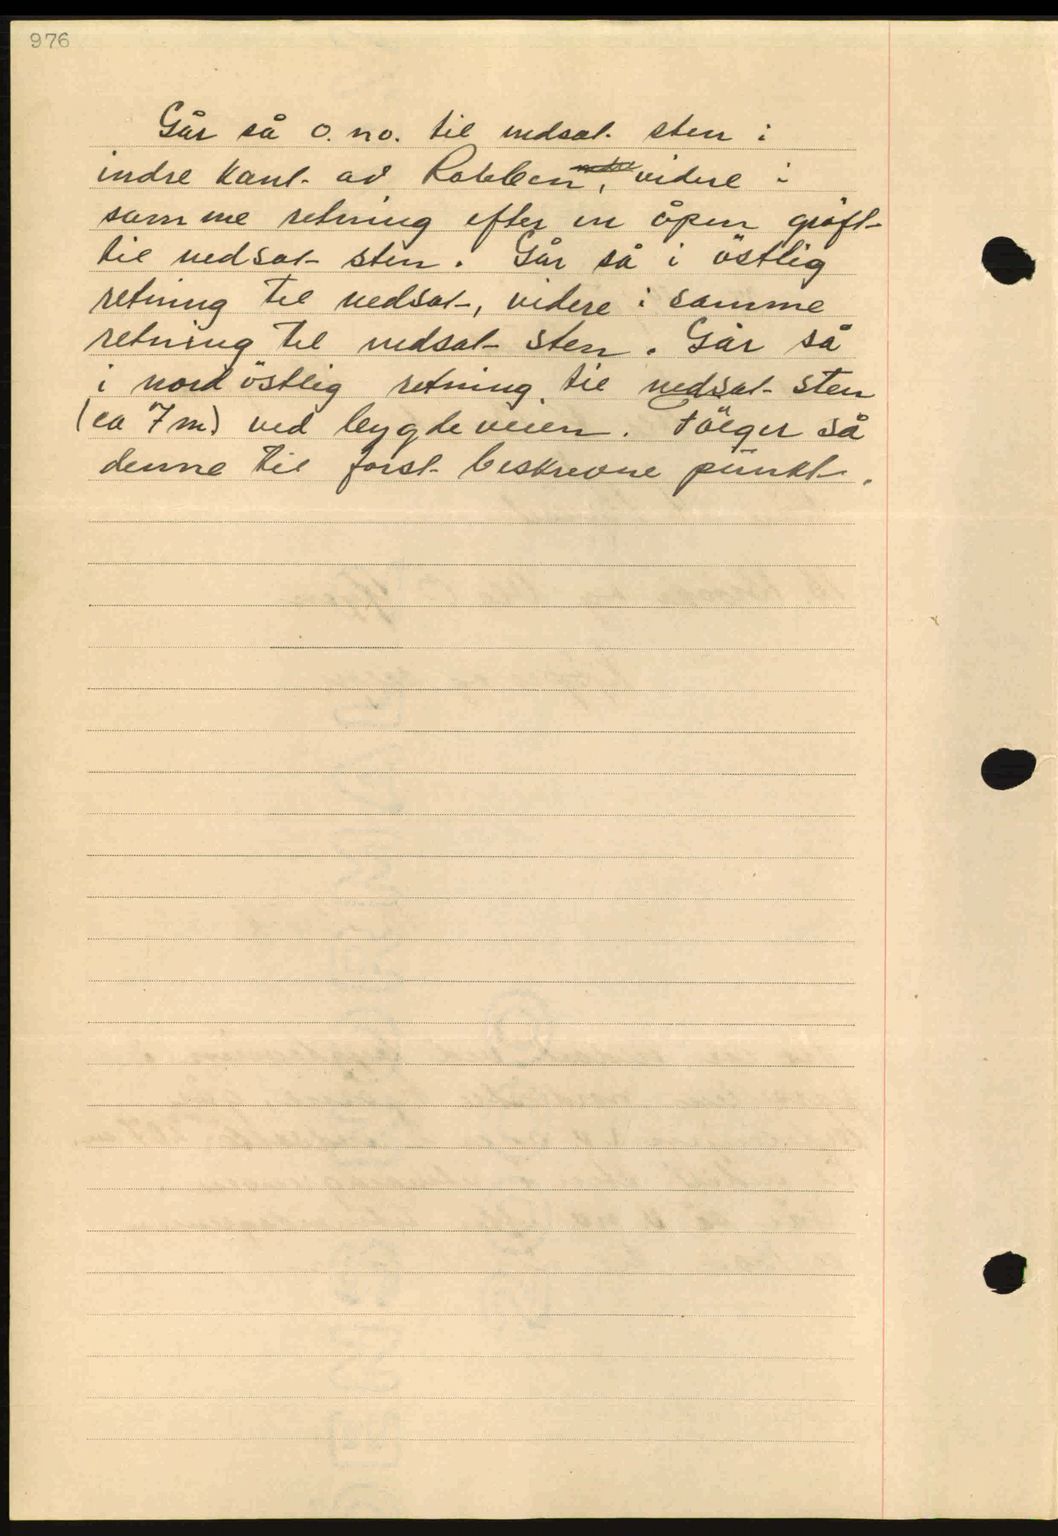 976
Går så o. no. til nedsat sten i
indre kant av Rabben, videre i
samme retning efter en åpen gröft
til nedsat sten. Går så i östlig
retning til nedsat, videre i samme
retning til nedsat sten. Går så
i nordöstlig retning til nedsat sten
(ca 7 m) ved bygdeveien. Fölger så
denne til först beskrevne punkt.